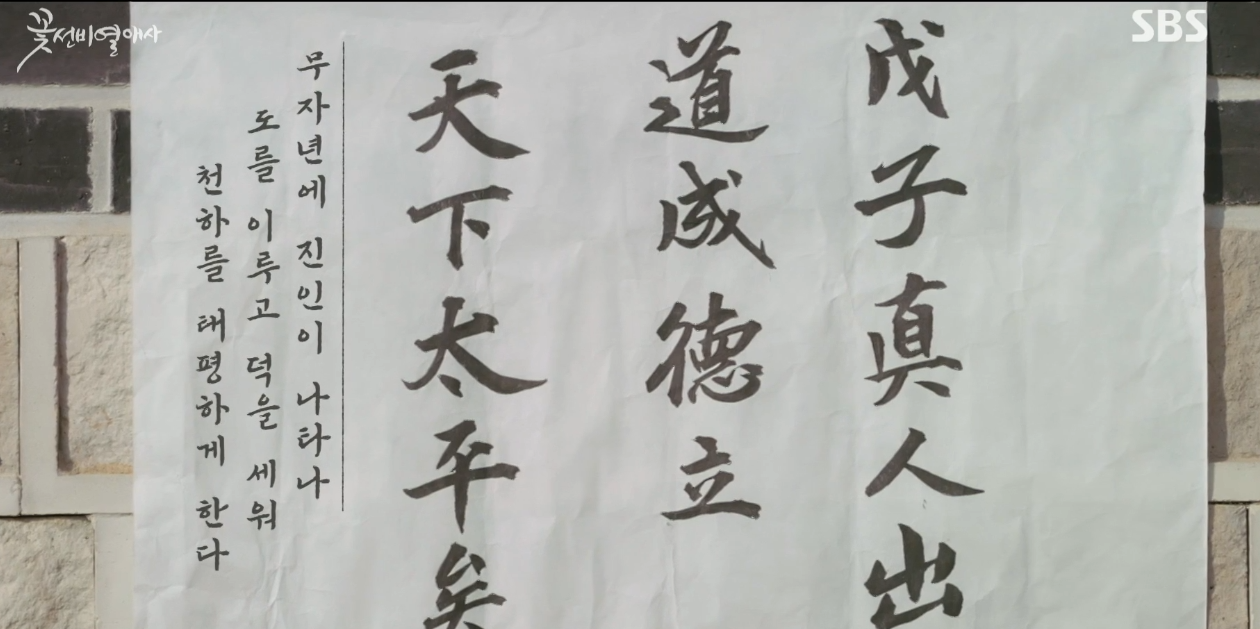 꽃선비열애사
SBS
戊子真人出
道成德立
天下太平矣
무자년에 진인이 나타나
도를 이루고 덕을 세워
천하를 태평하게 한다